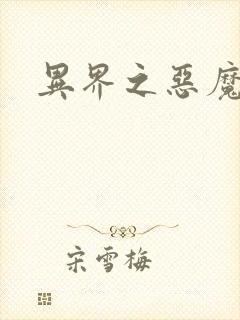 異界之惡魔
宋雪梅